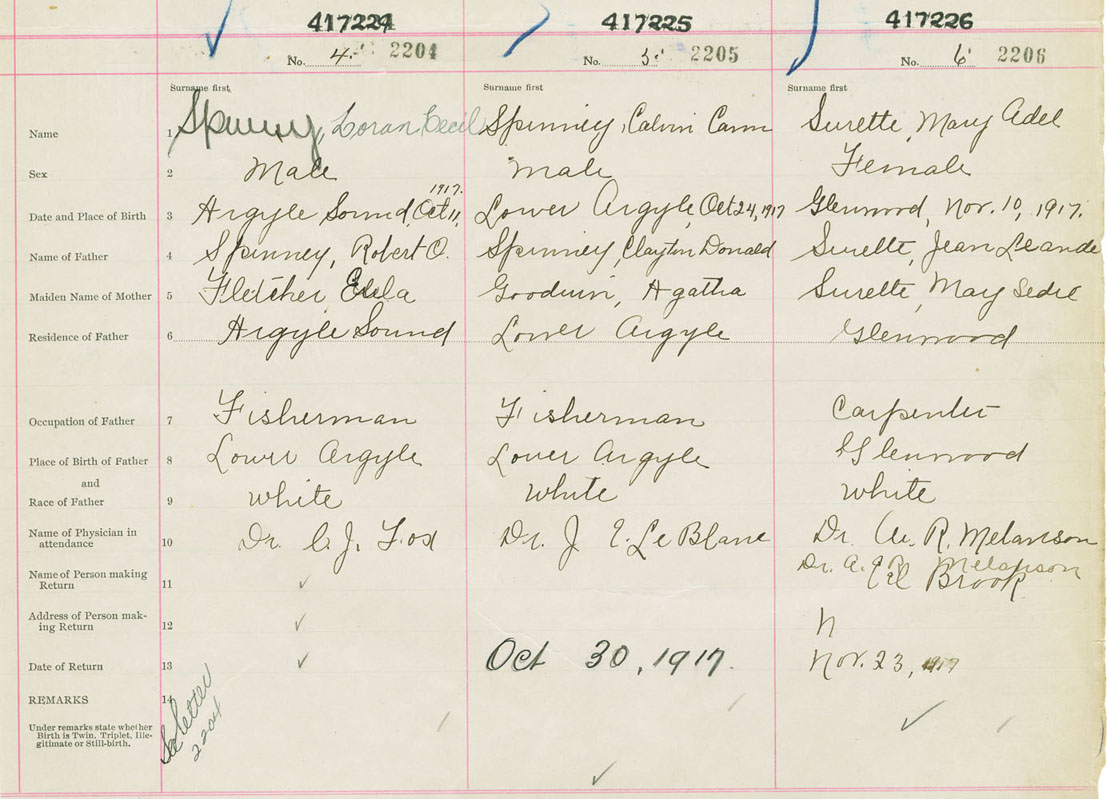 417224 417225 417226
No. 4 2204 No. 5 2205 No. 6 2206
Surname first, Surname first Surname first
Name 1 Spinney, Loran Cecil Spinney, Calvin Cann Surette, Mary Adel
Sex 2 Male male Female
1917.
Date and Place of Birth 3 Argyle Sound, Oct 11, Lower Argyle, Oct 24, 1917 Glenwood, Nov. 10, 1917.
Name of Father 4 Spinney, Robert O. Spinney, Clayton Donald Surette, Jean Leande
Maiden Name of Mother 5 Fletcher Goodwin, Agatha Surette, May Sedel
Residence of Father 6 Argyle Sound Lower Argyle Glenwood
Occupation of Father 7 Fisherman Fisherman Carpenter
Place of Birth of Father 8 Lower Argyle Lower Argyle Glenwood
and
Race of Father 9 White White White
Name of Physician in
attendance 10 Dr. C. J. Fox Dr. J E. LeBlanc Dr. R. Melanson
Name of Person making Dr. A. R Melanson
Return 11 Eel Brook
Address of Person mak-
ing Return 12 n
Date of Return 13 Oct 30, 1917. Nov. 23, 1917
REMARKS 14 See letter
2204
Under remarks state whether
Birth is Twin, Triplet, Ille-
gitimate or Still-birth.